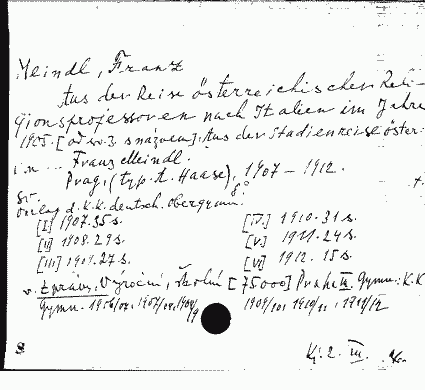 Meindl, Franz
Aus der Reise österreichischer Reli-
gionsprofessoren nach Italien im Jahre
1905. [od sv. 3 s názvem]: Aus der Studienreise öster-
r. n ... Franz Meindl.
Prag, (typ. A. Haase), 1907 – 1912.
8°
Verlag d. k.k. deutsch. obergymn.
[I] 1907. 35 s. [IV] 1910. 31 s.
[II] 1908. 29 s. [V] 1911. 24 s.
[III] 1909. 27 s. [VI] 1912. 15 s.
v. Zpráva, Výroční, školní [75000] Praha III. Gymn. K.K.
Gymn. 1906/07, 1907/08, 1908/9 1909/10, 1910/11, 1911/12
8
Kj: 2. III.